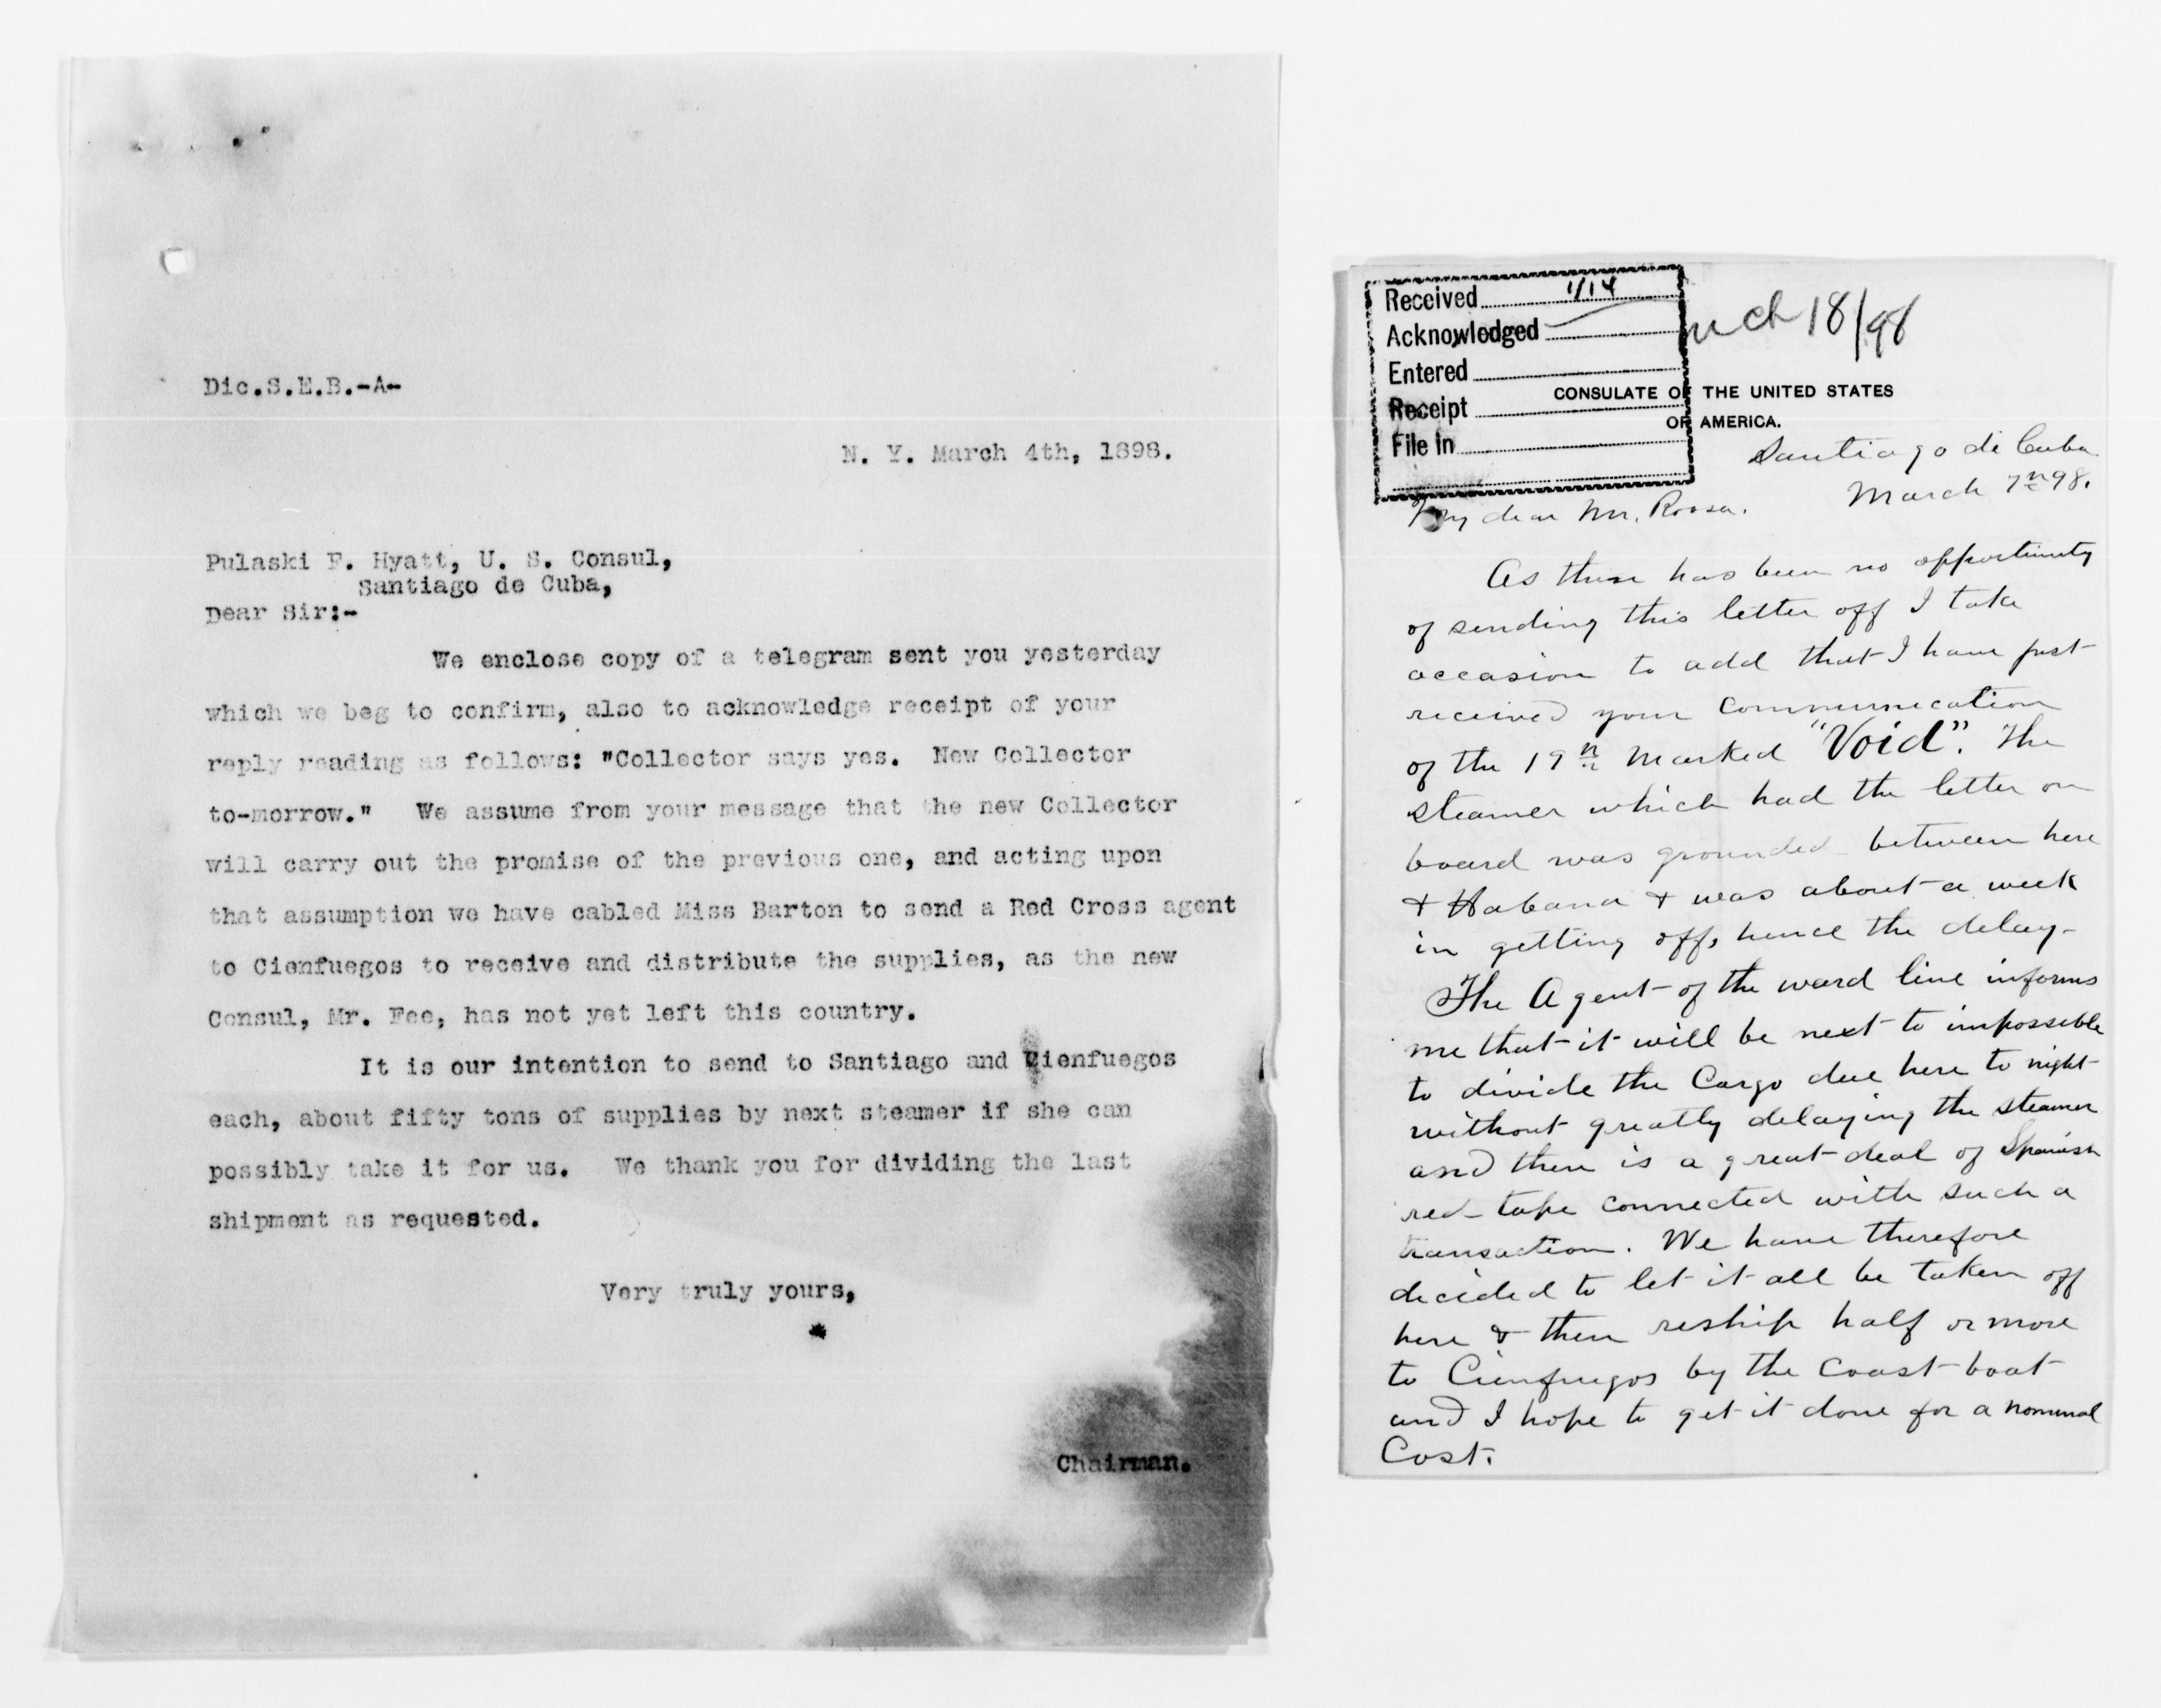 Dic.S.E.B.-A-
N. Y. March 4th, 1898.
Pulaski F. Hyatt, U. S. Consul,
Santiago de Cuba,
Dear Sir:-
We enclose copy of a telegram sent you yesterday
which we beg to confirm, also to acknowledge receipt of your
reply reading as follows: "Collector says yes. New Collector
to-morrow." We assume from your message that the new Collector
will carry out the promise of the previous one, and acting upon
that assumption we have cabled Miss Barton to send a Red Cross agent
to Cienfuegos to receive and distribute the supplies, as the new
Consul, Mr. Fee, has not yet left this country.
It is our intention to send to Santiago and Cienfuegos
each, about fifty tons of supplies by next steamer if she can
possibly take it for us. We thank you for dividing the last
shipment as requested.
Very truly yours,
Chairman.
Received 1/14
Acknowledged
Entered
Receipt
File in
18/98
CONSULATE OF THE UNITED STATES
OF AMERICA.
Santiago de Cuba
March 7th 98.
My dear Mr. Roosa.
As there has been no opportunity
of sending this letter off I take
occasion to add that I have just
received your communication
of the 19th marked "Void". The
steamer which had the letter on
board was grounded between here
& Habana & was about a week
in getting off, hence the delay-
The Agent of the ward line informs
me that it will be next to impossible
to divide the Cargo due here to night
without greatly delaying the steamer
and there is a great deal of Spanish
red tape connected with such a
transaction. We have therefore
decided to let it all be taken off
here & then reship half or more
to Cienfuegos by the coast boat
and I hope to get it done for a nominal
Cost.